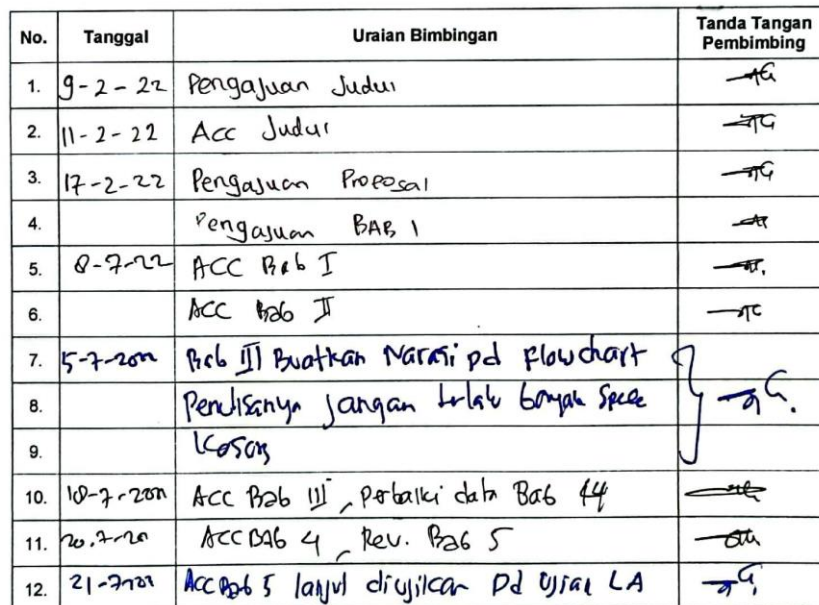 No. Tanggal Uraian Bimbingan Tanda Tangan Pembimbing
1. 9-2-22 Pengajuan Judul
2. 11-2-22 Acc Judul
3. 17-2-22 Pengajuan Proposal
4. Pengajuan BAB 1
5. 8-7-22 ACC Bab I
6. ACC Bab II
7. 5-7-2022 Bab III Buatkan Narasi pd Flowchart
8. Penulisanya Jangan terlalu banyak Space
9. Kosong
10. 18-7-2022 ACC Bab III, Perbaiki data Bab 4
11. 20.7-20 ACC BAB 4, Rev. Bab 5
12. 21-7-202 ACC Bab 5 lanjut diujikan Pd Ujian LA